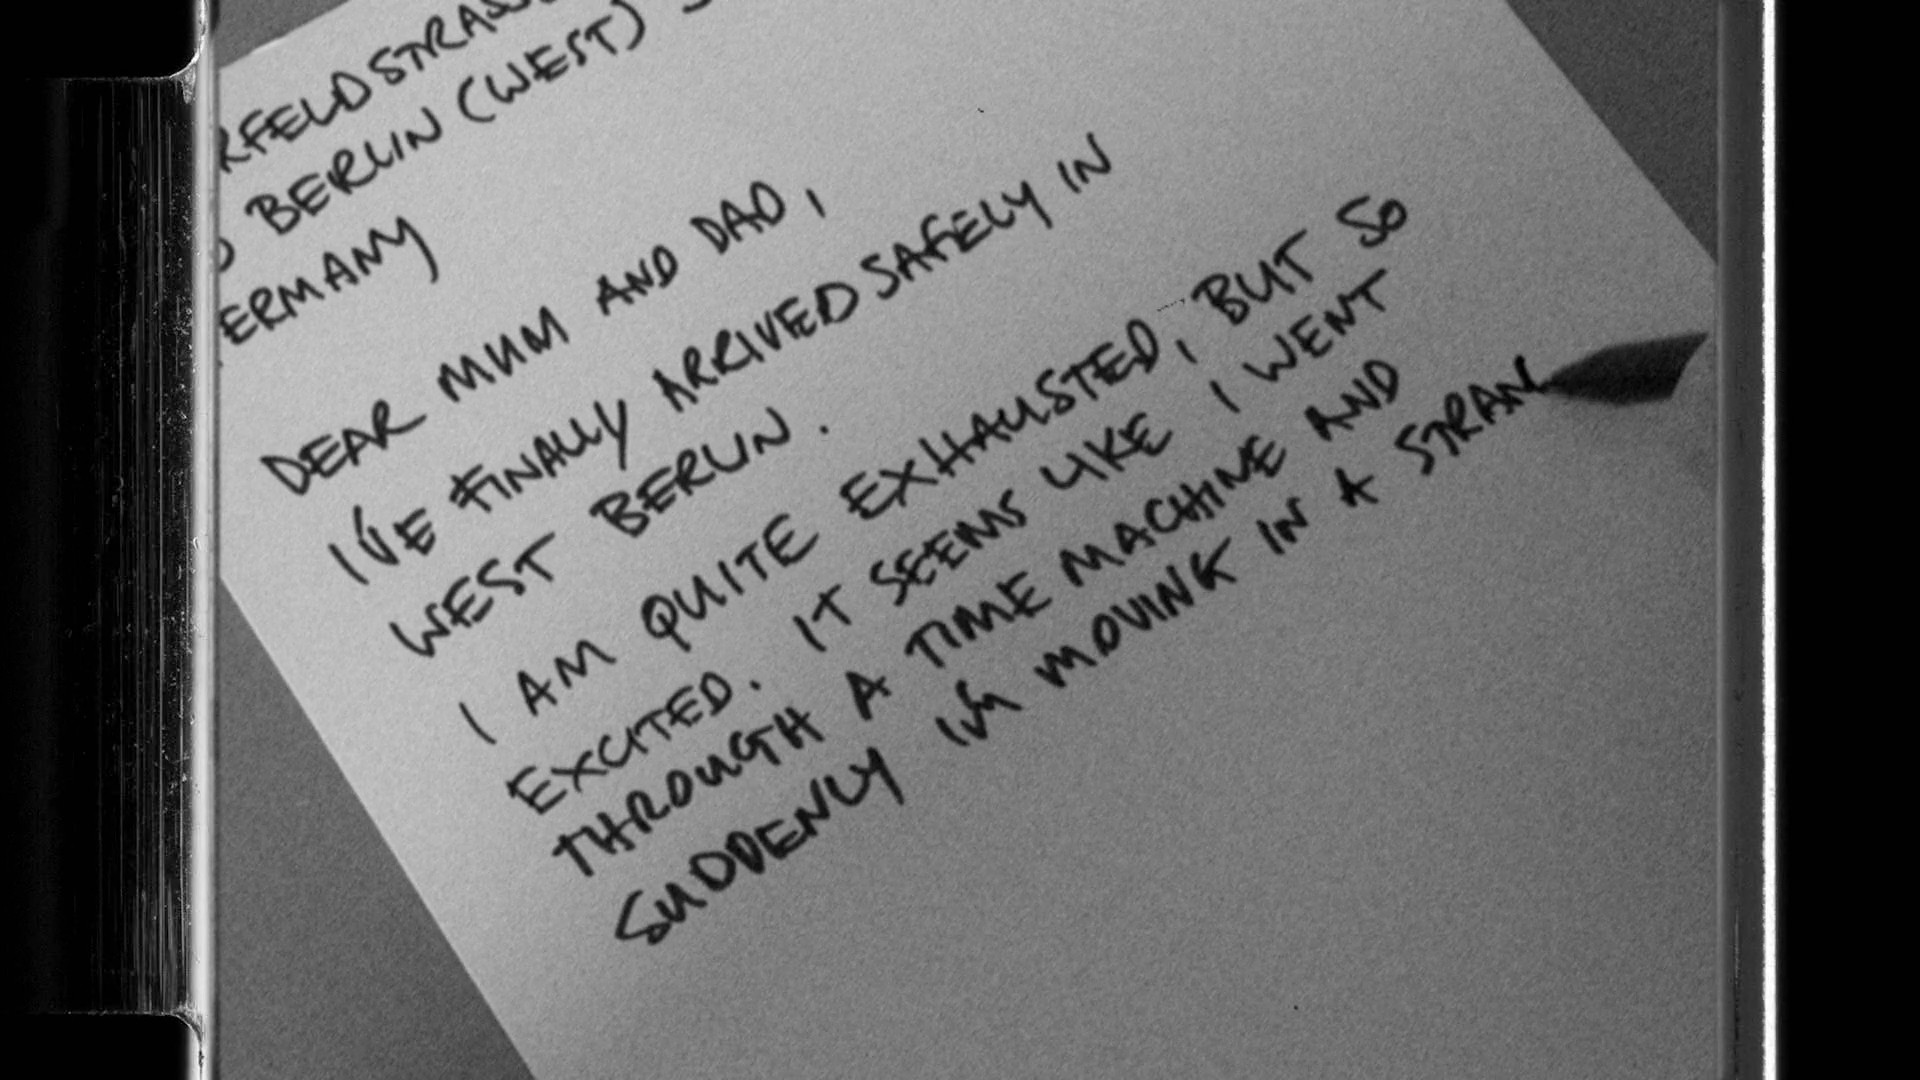 RFELDSTRASS
BERLIN (WEST)
ERMANY
DEAR MUM AND DAD,
I'VE FINALLY ARRIVED SAFELY IN
WEST BERLIN.
I AM QUITE EXHAUSTED, BUT SO
EXCITED. IT SEEMS LIKE I WENT
THROUGH A TIME MACHINE AND
SUDDENLY I'M MOVING IN A STRAN